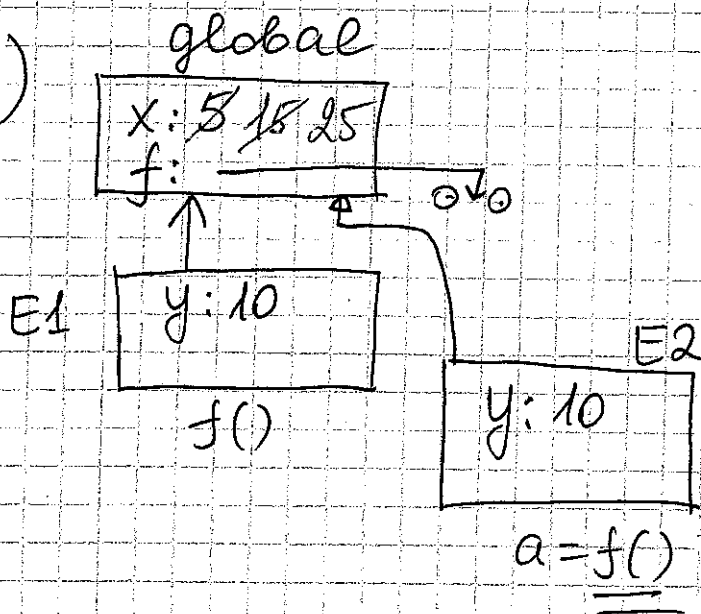 )
global
x: 5 15 25
f:
E1
y: 10
f()
E2
y: 10
a = f()